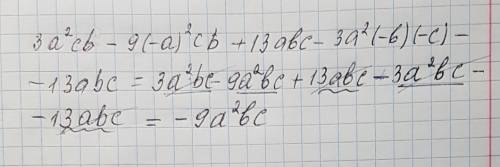 3a²cb - 9(-a)²cb + 13abc - 3a²(-b)(-c) -
- 13abc = 3a²bc - 9a²bc + 13abc - 3a²bc -
- 13abc = -9a²bc